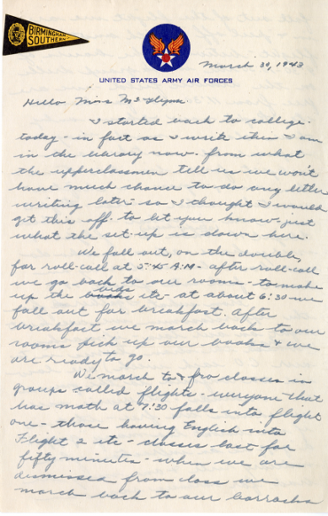 BIRMINGHAM
SOUTHERN
March 30, 1943
UNITED STATES ARMY AIR FORCES
Hello Miss
I started back to college
today - in fact as I write this I am
in the library now. from what
the upperclassmen tell us we won't
have much chance to do any letter
writing later - so I thought I would
get this off to let you know just
what the set-up is down here.
We fall out, on the double,
for roll-call at 5:45 A.M. - after roll-call
we go back to our rooms - to make
up the beds etc - at about 6:30 we
fall out for breakfast. After
breakfast we march back to our
rooms pick up our books & we
are ready to go.
We march to & fro classes in
groups called flights - everyone that
has math at 7:30 falls into flight
one - those having English into
Flight 2 etc - classes last for
fifty minutes - when we are
dismissed from class we
march back to our barracks